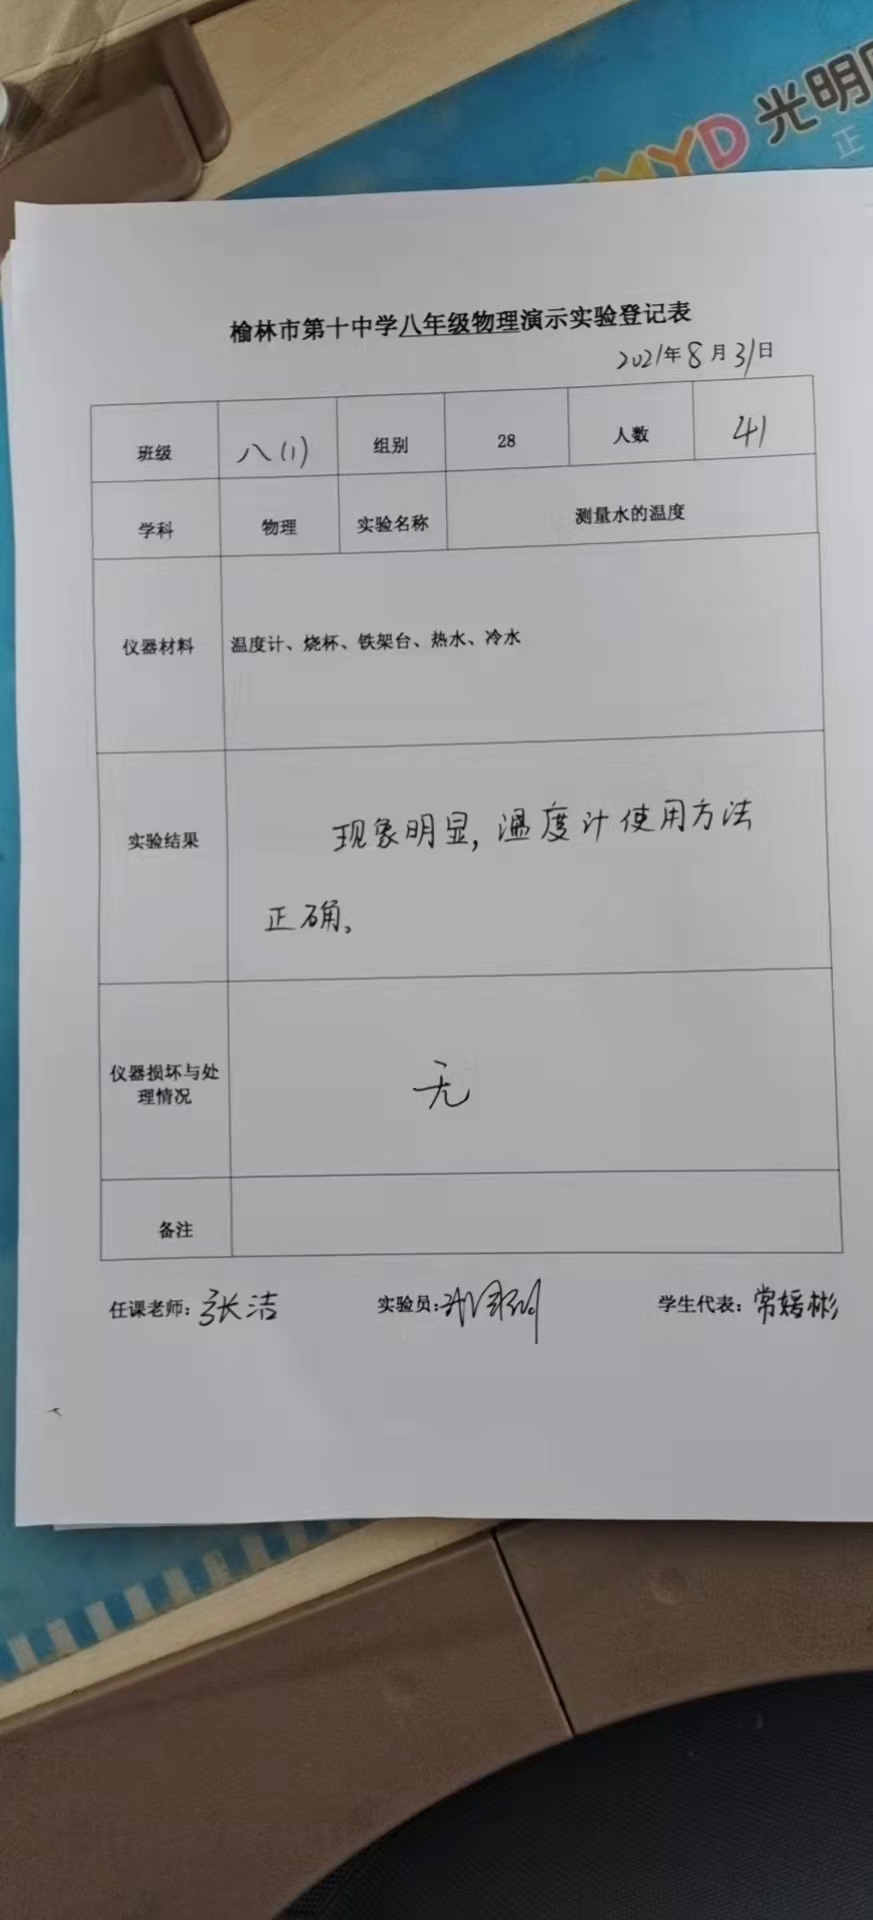 MYD 光明
正
榆林市第十中学八年级物理演示实验登记表
2021年8月31日
班级 八(1) 组别 28 人数 41
学科 物理 实验名称 测量水的温度
仪器材料 温度计、烧杯、铁架台、热水、冷水
实验结果 现象明显,温度计使用方法
正确。
仪器损坏与处
理情况 无
备注
任课老师:张洁 实验员: 学生代表:常媛彬